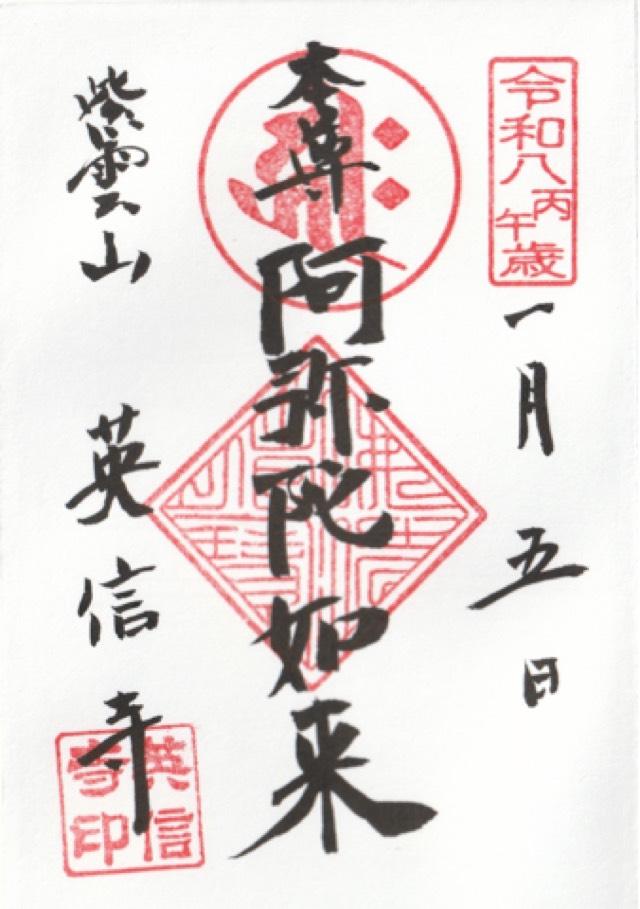 令和八丙午歳
一月五日
本尊
阿弥陀如来
紫雲山
英信寺
英信寺印